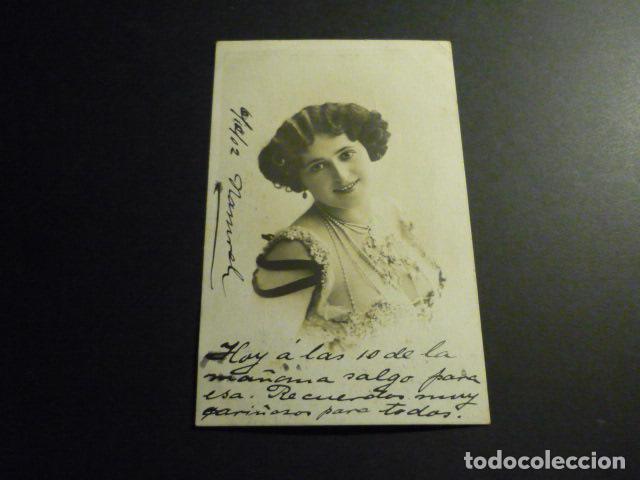 6/10/02
Hoy á las 10 de la
mañana salgo para
esa. Recuerdos muy
cariñosos para todos.
todocoleccion